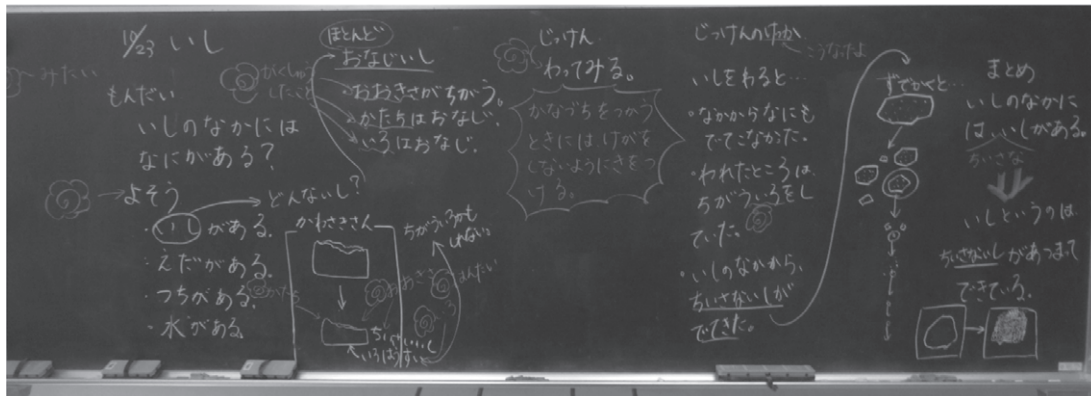 10/23 いし
みたい
もんだい
いしのなかには
なにがある？
よそう
・いしがある。
・えだがある。
・つちがある。
・水がある。
どんないし？
がくしゅう
したこと
ほとんど
おなじいし
・おおきさがちがう。
・かたちはおなじ。
・いろはおなじ。
かわさきさん
かたち
おおきさ
はんたい
ちがういろかも
しれない。
ちいさいいし
じっけん
わってみる。
かなづちをつかう
ときには、けがを
しないようにきをつ
ける。
じっけんのけっか
こうなったよ
いしをわると…
・なかからなにも
でてこなかった。
・われたところは、
ちがういろをし
ていた。
・いしのなかから、
ちいさないしが
でてきた。
ずでかくと…
まとめ
いしのなかに
は、いしがある。
ちいさな
いしというのは、
ちいさないしがあつまって
できている。